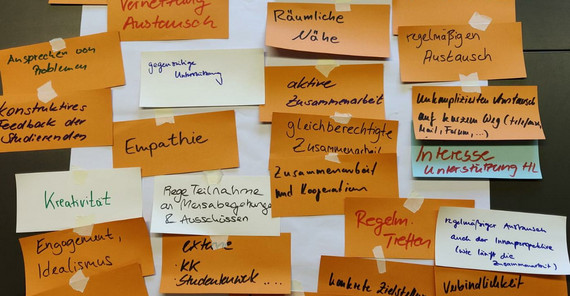 Vernetzung
Austausch
Räumliche
Nähe
regelmäßigen
Austausch
Ansprechen von
Problemen
gegenseitige
Unterstützung
aktive
Zusammenarbeit
unkomplizierten Austausch
auf kurzem Weg (telefon,
Mail, Forum, ...)
Konstruktives
Feedback der
Studierenden
Empathie
gleichberechtigte
Zusammenarbeit
Zusammenarbeit
und Kooperation
Interesse
Unterstützung HL
Kreativität
Rege Teilnahme
an Mensabegehungen
& Ausschüssen
Regelm.
Treffen
regelmäßiger Austausch
auch der Innenperspektive
(wie läuft die
Zusammenarbeit)
Engagement,
Idealismus
externe
KK
Studentenwerk ....
konkrete
Verbindlichkeit